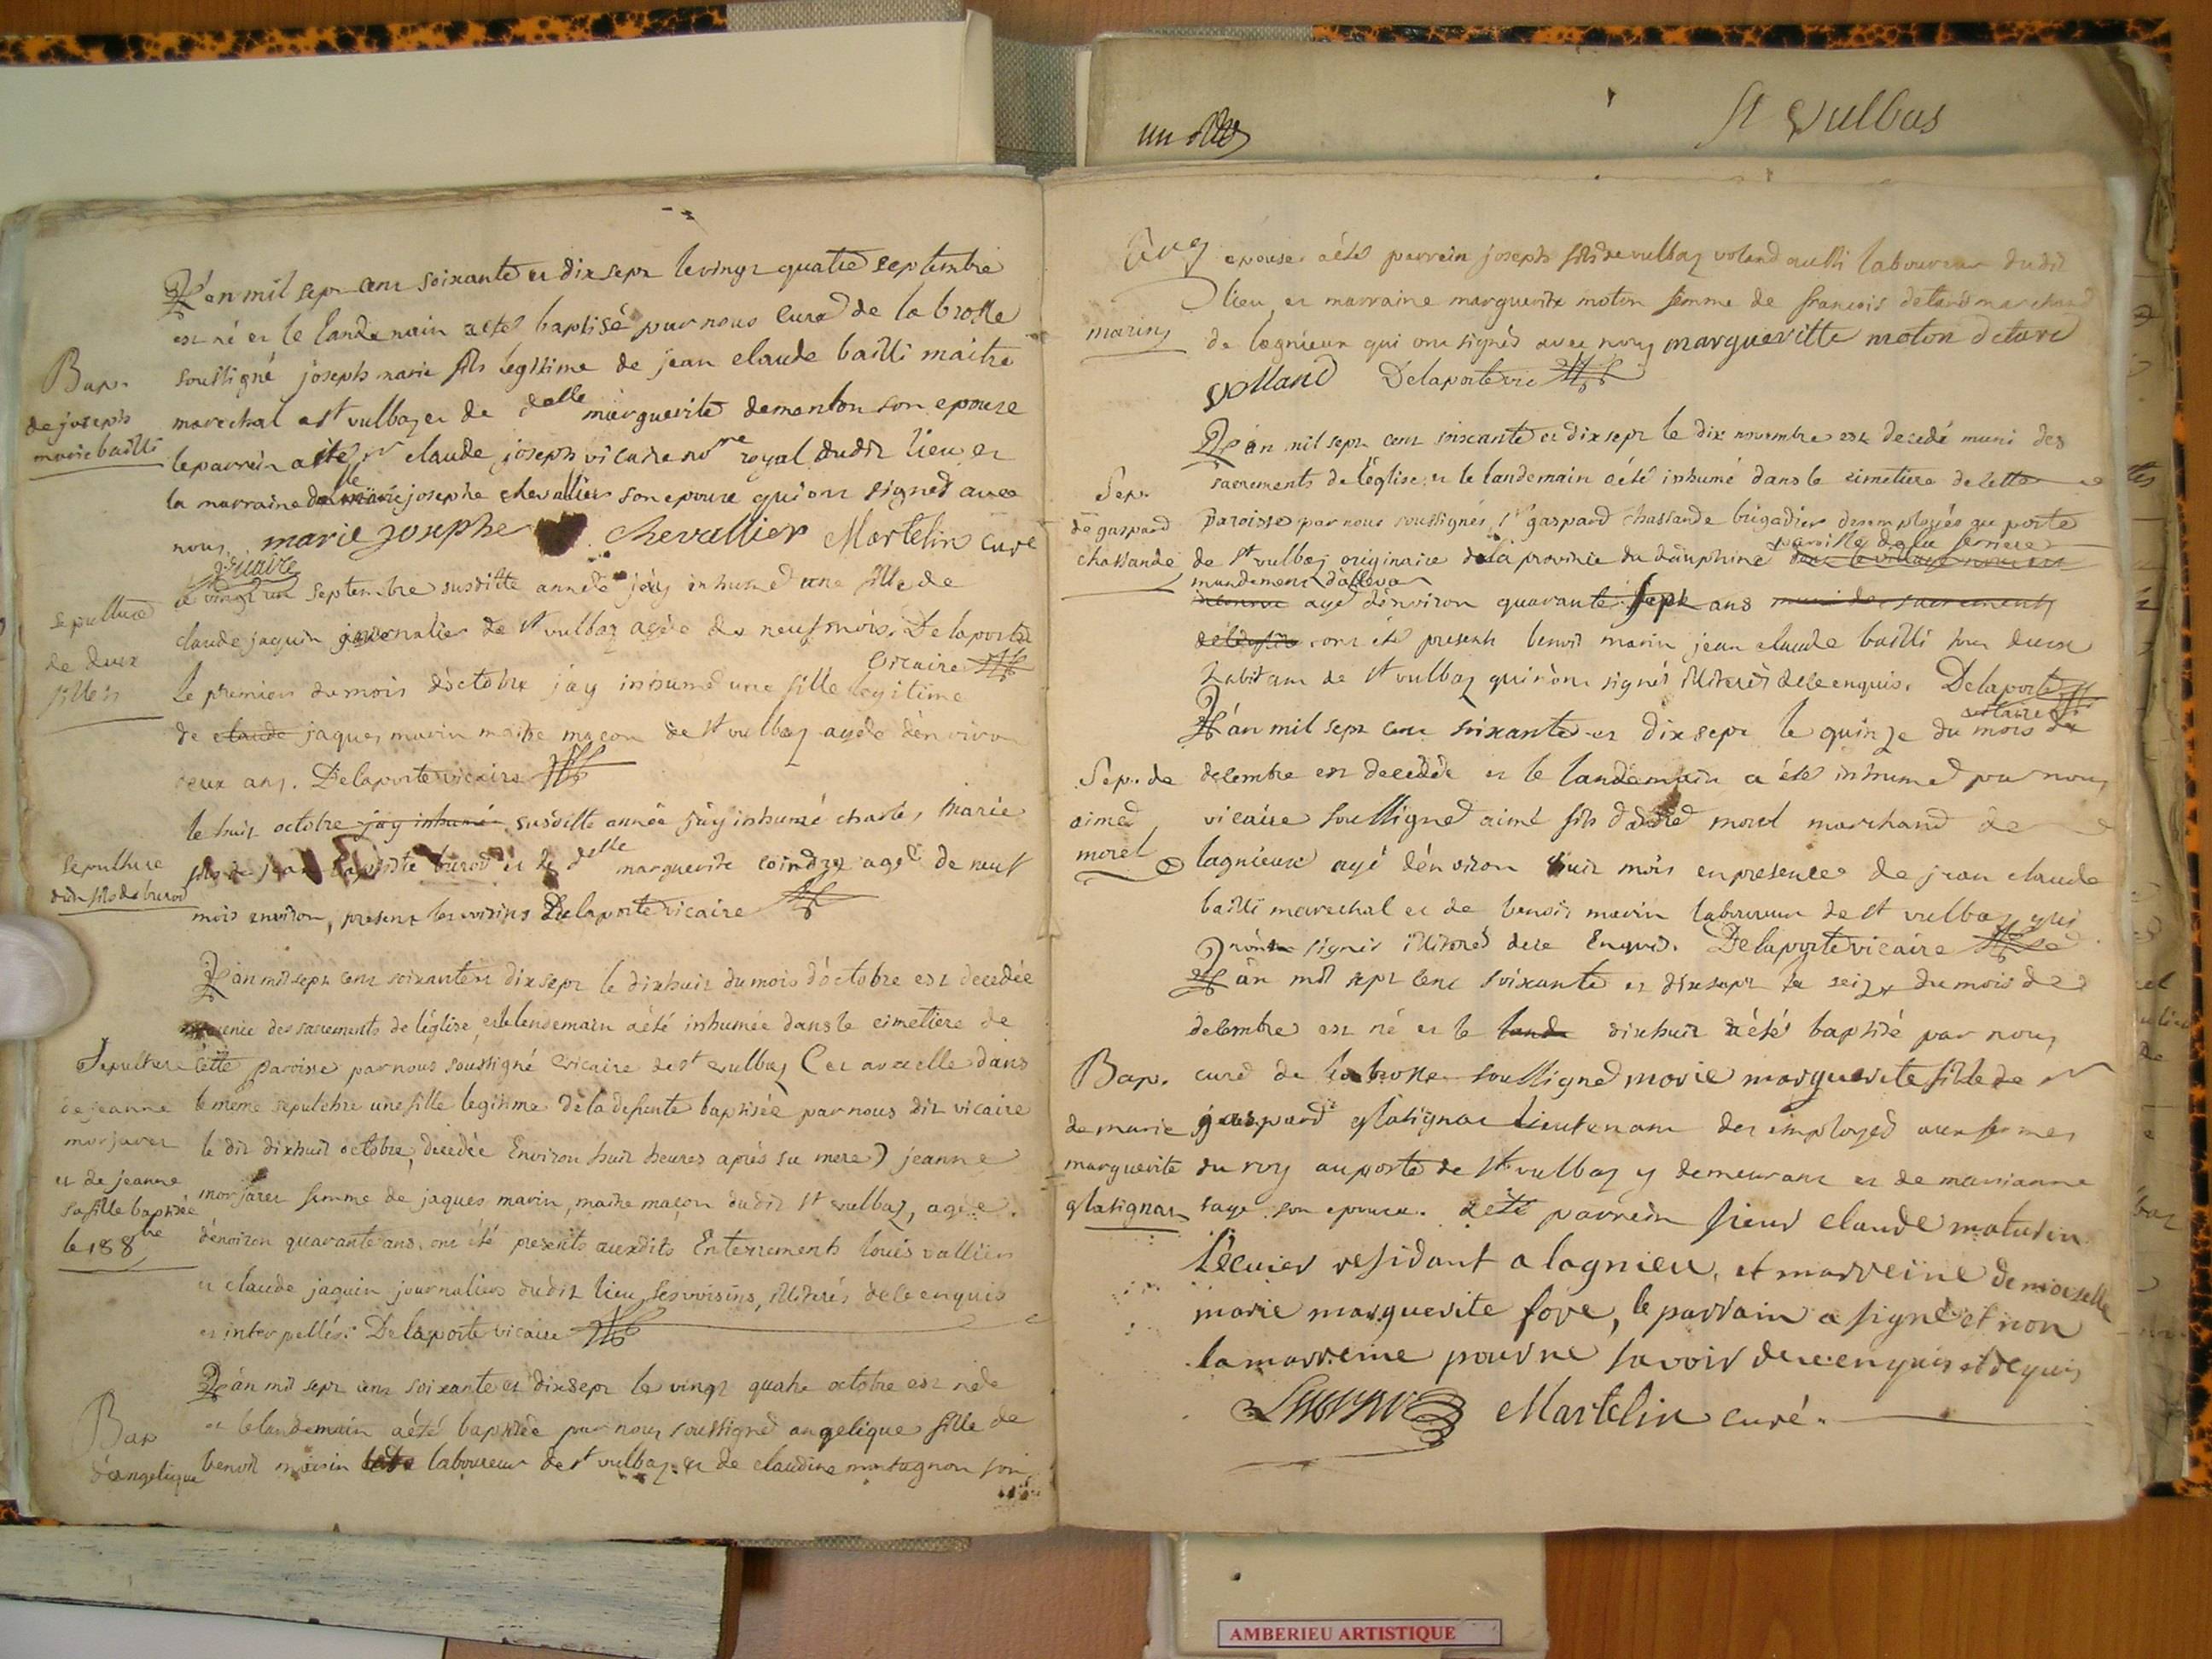 St Vulbas
L'an mil sept cent soixante et dix sept le vingt quatre septembre
est né et le landemain a eté baptisé par nous curé de la brosse
soussigné joseph marie fils legitime de jean claude bailli maitre
marechal a st vulbaz et de delle marguerite demanton son epouse
le parrein a eté sr claude joseph vicaire nore royal dudit lieu et
la marraine delle marie josephe chevallier son epouse qui ont signés avec
nous. marie josephe chevallier Martelin curé
vicaire
Bap.
de joseph
marie bailli
le vingt un septembre susditte année j'ay inhumé une fille de
claude jaquin journalier de st vulbaz agée de neuf mois. Delaporte
vicaire
Sepulture
de deux
filles
Le premier du mois d'octobre j'ay inhumé une fille legitime
de claude jaques marin maitre maçon de st vulbaz agée d'environ
deux ans. Delaporte vicaire
le huit octobre jay inhumé susditte année j'ay inhumé charle, marie
fils de jean baptiste burod et de delle marguerite coindre agé de neuf
mois environ, present les voisins Delaporte vicaire
sepulture
d'un fils de burod
L'an mil sept cent soixante et dix sept le dixhuit du mois d'octobre est decedée
munie des sacrements de l'église, et le lendemain a été inhumée dans le cimetiere de
cette paroisse par nous soussigné vicaire de st vulbaz (et avec elle dans
le meme sepulchre une fille legitime de la defunte baptisée par nous dit vicaire
le dit dixhuit octobre, decedée environ huit heures après sa mere) jeanne
morjaret femme de jaques marin, maitre maçon dudit st vulbaz, agée
d'environ quarante ans. ont été presents auxdits Enterrements louis vallier
et claude jaquin journaliers dudit lieu ses voisins, illiterés de ce enquis
et interpellés. Delaporte vicaire
Sepulture
de jeanne
morjaret
et de jeanne
sa fille baptisée
le 18 8bre
L'an mil sept cent soixante et dix sept le vingt quatre octobre est née
et le landemain a été baptisée par nous soussigné angelique fille de
benoit marin laboureur de st vulbaz et de claudine montagnon son
Bap
d'angelique
marin
epouse. a été parrein joseph fils de vulbaz voland aussi laboureur dudit
lieu et marraine marguerite moton femme de francois detard marchand
de lagnieux qui ont signés avec nous margueritte moton detard
volland Delaporte vic
L'an mil sept cent soixante et dix sept le dix novembre est decedé muni des
sacrements de l'église, et le landemain a été inhumé dans le cimetiere de cette
paroisse par nous soussignés, sr gaspard chassande brigadier des employés au porte
de st vulbaz originaire de la province du dauphine paroisse de la ferriere
mandement d'allevar
agé d'environ quarante sept ans muni des sacrements
ont été presents benoit marin jean claude bailli tous deux
habitant de st vulbaz qui n'ont signés illiterés de ce enquis. Delaporte
vicaire
Sep.
de gaspard
chassande
L'an mil sept cent soixante et dix sept le quinze du mois de
decembre est decedé et le landemain a été inhumé par nous
vicaire soussigné aimé fils d'andré morel marchand de
lagnieux agé d'environ huit mois en presence de jean claude
bailli marechal et de benoit marin laboureur de st vulbaz qui
n'ont signés illiterés de ce Enquis. Delaporte vicaire
Sep. de
aimé
morel
L'an mil sept cent soixante et dix sept le seize du mois de
decembre est né et le dixhuit a été baptisé par nous
curé de la brosse soussigné marie marguerite fille de
gaspard glatignat lieutenant des employés aux fermes
du roy au porte de st vulbaz y demeurant et de marianne
sage son epouse. a été parrein sieur claude maturin
Lecuier residant a lagnieu, et marreine demoiselle
marie marguerite fore, le parrain a signé et non
la marreine pour ne savoir de ce enquis et requis
Martelin curé.
Bap.
de marie
marguerite
glatignat
AMBERIEU ARTISTIQUE